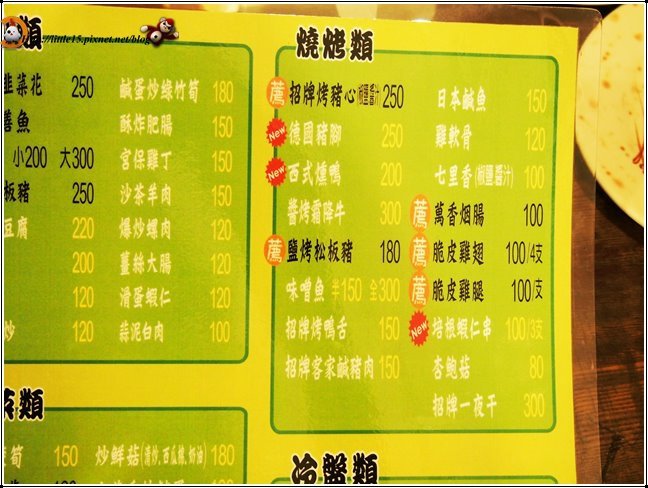 //little15.pixnet.net/blog
類
韭菜花 250
善魚
小200 大300
板豬 250
豆腐 220
200
120
炒 120
鹹蛋炒綠竹筍 180
酥炸肥腸 150
宮保雞丁 150
沙茶羊肉 150
爆炒螺肉 120
薑絲大腸 120
滑蛋蝦仁 120
蒜泥白肉 100
類
筍 150
炒鮮菇(清炒,西瓜綿,奶油) 180
燒烤類
薦 招牌烤豬心(椒鹽醬汁) 250
New 德國豬腳 250
New 西式燻鴨 200
醬烤霜降牛 300
薦 鹽烤松板豬 180
味噌魚 半150 全300
招牌烤鴨舌 150
招牌客家鹹豬肉 150
日本鹹魚 150
雞軟骨 120
七里香(椒鹽醬汁) 100
薦 萬香烟腸 100
薦 脆皮雞翅 100/4支
薦 脆皮雞腿 100/支
New 培根蝦仁串 100/3支
杏鮑菇 80
招牌一夜干 300
冷盤類